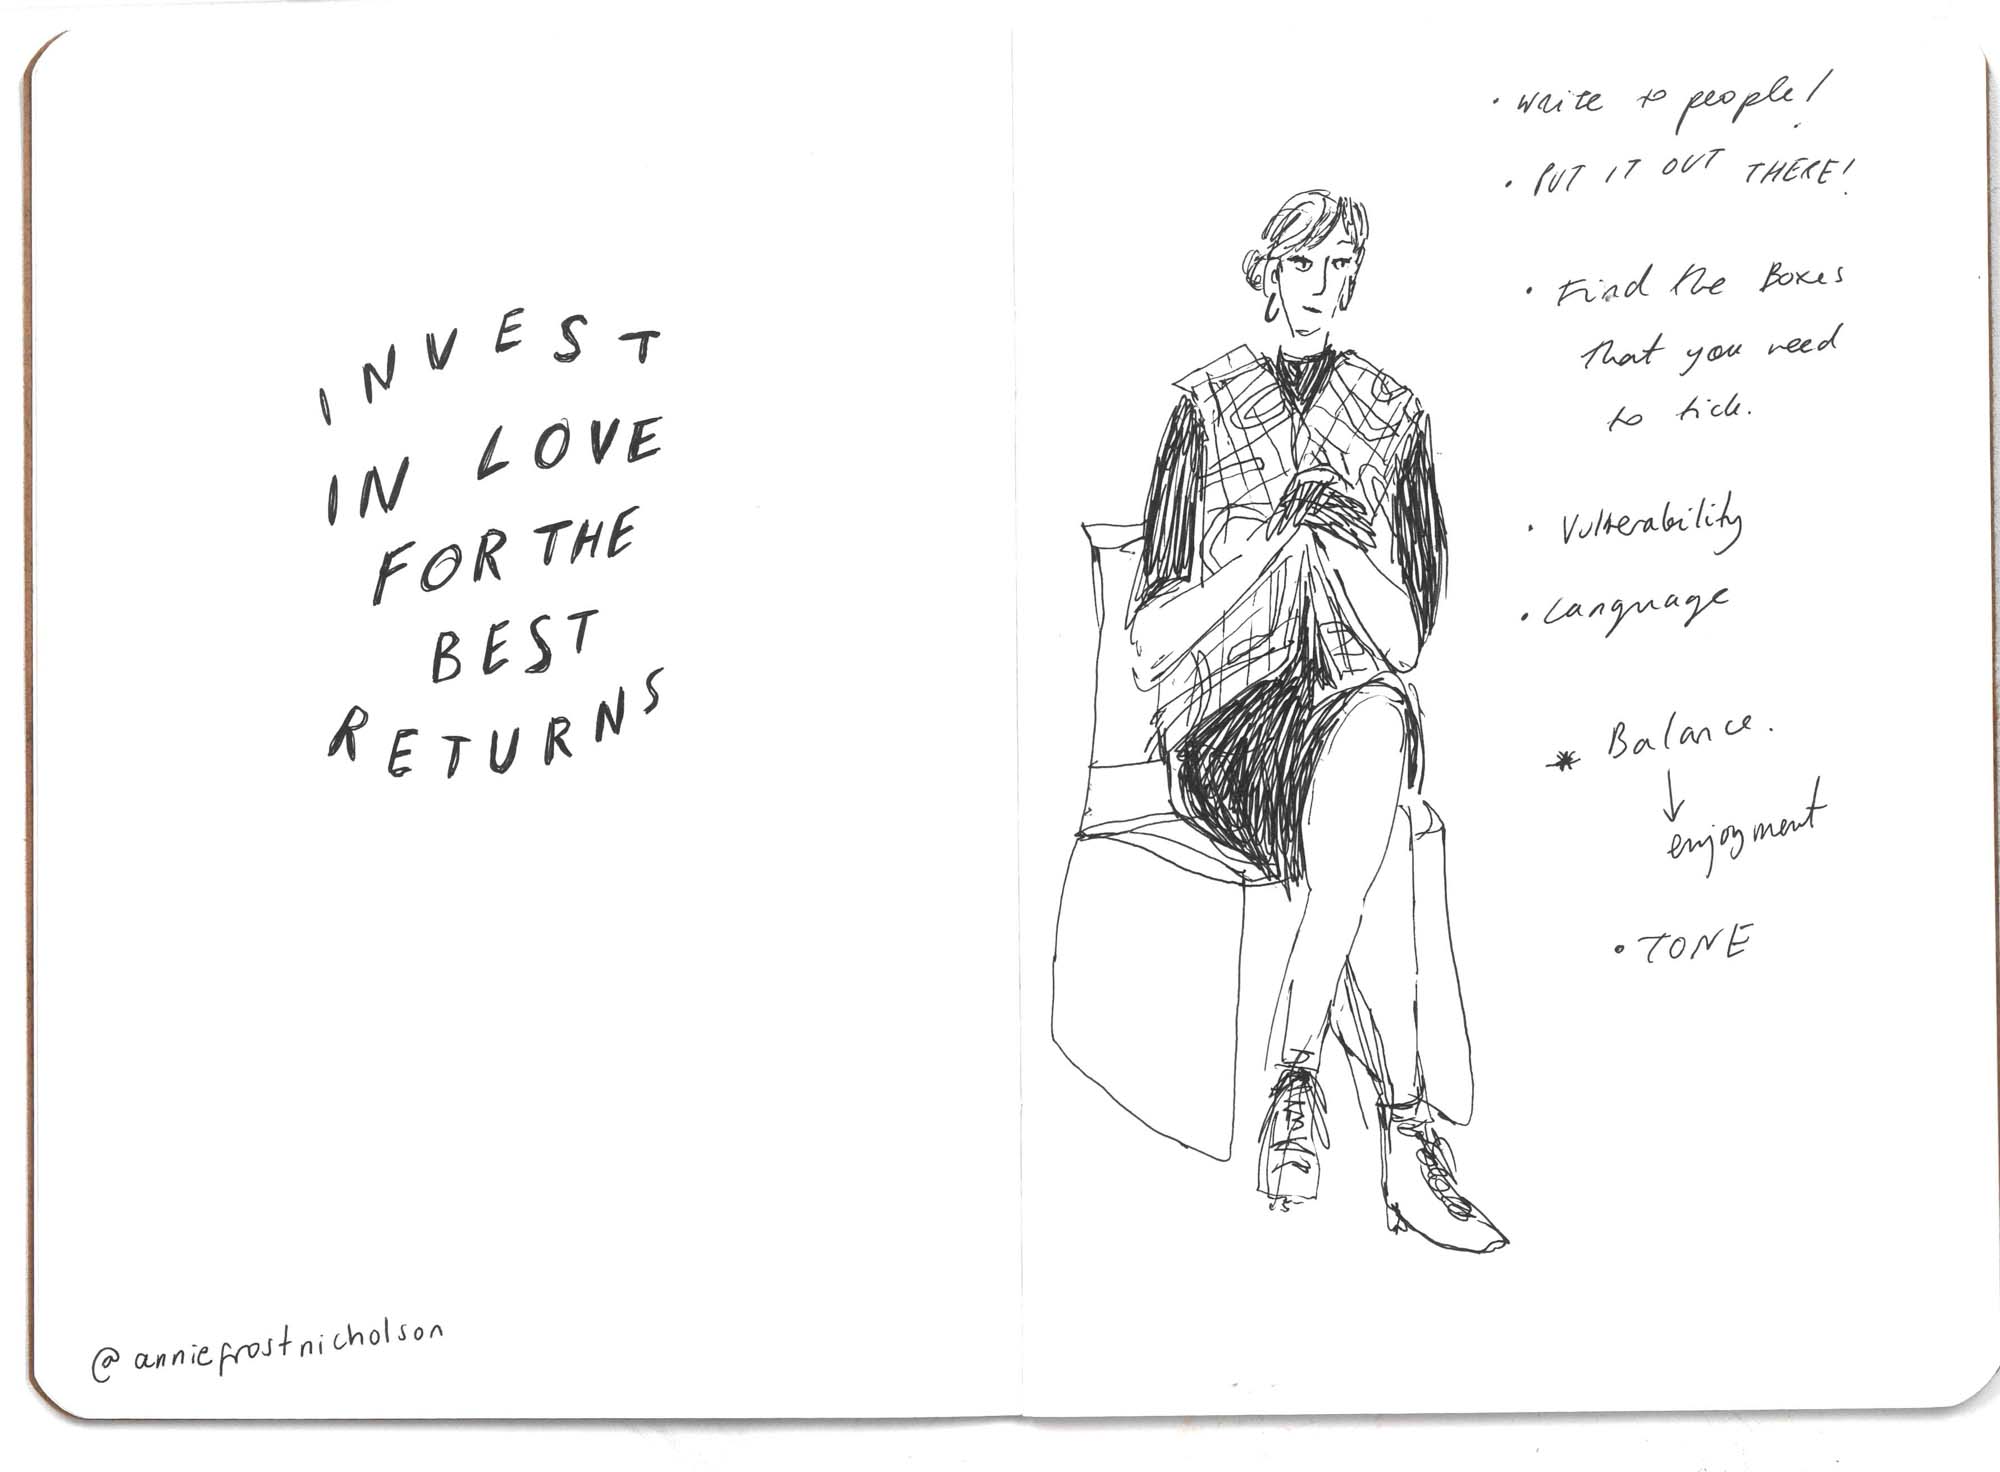 INVEST
IN LOVE
FOR THE
BEST
RETURNS
@anniefrostnicholson
• Write to people!
• PUT IT OUT THERE!
• Find the Boxes
that you need
to tick.
• Vulnerability
• Language
* Balance.
↓
enjoyment
• TONE